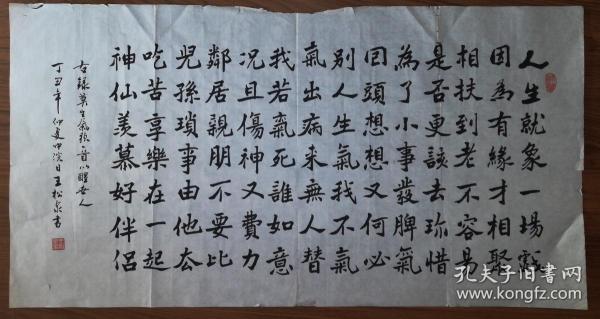 人生就象一場戲
因為有緣才相聚
相扶到老不容易
是否更該去珎惜
為了小事發脾氣
回頭想想又何必
別人生氣我不氣
氣出病来無人替
我若氣死誰如意
況且傷神又費力
鄰居親朋不要比
兒孫瑣事由他厺
吃苦享樂在一起
神仙羨慕好伴侶
右錄莫生氣歌一首以醒世人
丁丑年仲夏中浣日王松泉书
孔夫子旧书网
www.kongfz.com